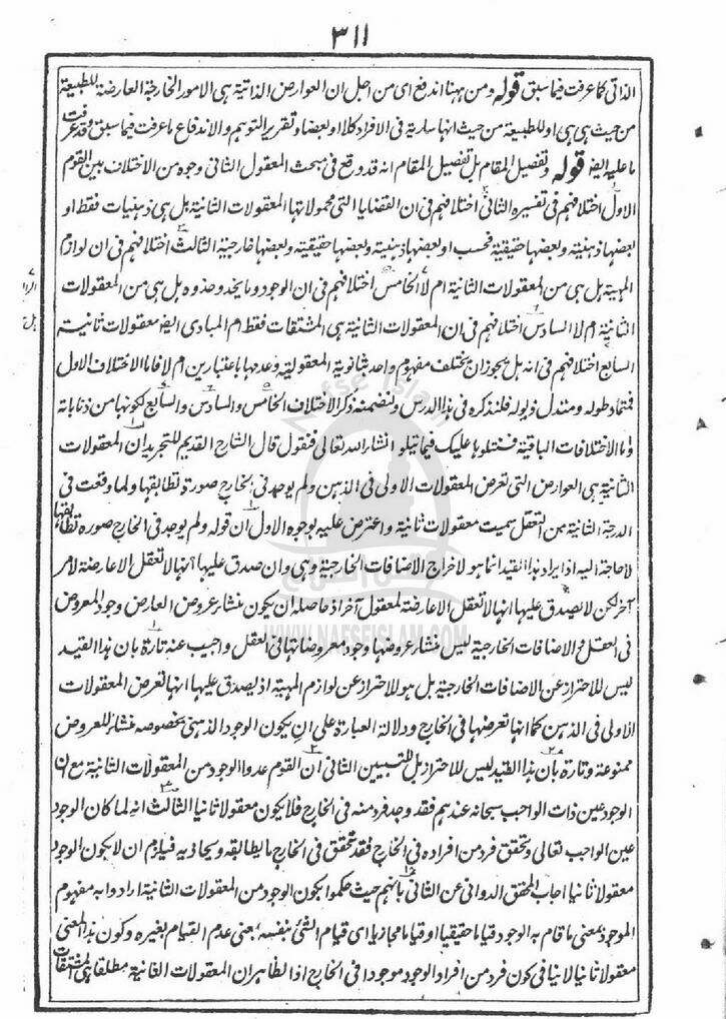 ٣١١
الذاتى كما عرفت فيما سبق قوله ومن ههنا اندفع اى من اجل ان العوارض الذاتية هى الامور الخارجية العارضة للطبيعة
من حيث هى هى او للطبيعة من حيث انها سارية فى الافراد كلا او بعضا وتقرير التوهم والاندفاع ما عرفت فيما سبق وقد عرفت
ما عليه ايضا قوله وتفصيل المقام بل تفصيل المقام انه قد وقع فى مبحث المعقول الثانى وجوه من الاختلاف بين القوم
الاول اختلافهم فى تفسيره الثانى اختلافهم فى ان القضايا التى محمولاتها المعقولات الثانية بل هى ذهنيات فقط او
بعضها ذهنية وبعضها حقيقية فحسب او بعضها ذهنية وبعضها حقيقية وبعضها خارجية الثالث اختلافهم فى ان لوازم
المهية بل هى من المعقولات الثانية ام لا الخامس اختلافهم فى ان الوجود وما يحذو حذوه بل هى من المعقولات
الثانية ام لا السادس اختلافهم فى ان المعقولات الثانية هى المشتقات فقط ام المبادى ايضا معقولات ثانية
السابع اختلافهم فى انه بل يجوز ان يختلف مفهوم واحد بثانوية المعقولية وعدمها باعتبارين ام لا فاما الاختلاف الاول
فمتماد طوله ومتدل ذيوله فلنذكره فى هذا الدرس ولنضمنه ذكر الاختلاف الخامس والسادس والسابع لكونها من ذناباته
واما الاختلافات الباقية فسنتلوها عليك فيما يتلو انشاء الله تعالى فنقول قال الشارح القديم للتجريد ان المعقولات
الثانية هى العوارض التى تعرض المعقولات الاولى فى الذهن ولم يوجد فى الخارج صورة تطابقها ولما وقعت فى
الدرجة الثانية من التعقل سميت معقولات ثانية واعترض عليه بوجوه الاول ان قوله ولم يوجد فى الخارج صورة تطابقها
لا حاجة اليه اذ ايراد هذا القيد انما هو لاخراج الاضافات الخارجية وهى وان صدق عليها انها لا تعقل الا عارضة لامر
آخر لكن لا يصدق عليها انها لا تعقل الا عارضة لمعقول آخر اذ حاصله ان يكون منشأ عروض العارض وجود المعروض
فى العقل والاضافات الخارجية ليس منشأ عروضها وجود معروضاتها فى العقل واجيب عنه تارة بان هذا القيد
ليس للاحتراز عن الاضافات الخارجية بل هو للاحتراز عن لوازم المهية اذ يصدق عليها انها تعرض المعقولات
الاولى فى الذهن كما انها تعرضها فى الخارج ودلالة العبارة على ان يكون الوجود الذهنى بخصوصه منشأ للعروض
ممنوعة وتارة بان هذا القيد ليس للاحتراز بل للتبيين الثانى ان القوم عدوا الوجود من المعقولات الثانية مع ان
الوجود عين ذات الواجب سبحانه عندهم فقد وجد فرد منه فى الخارج فلا يكون معقولا ثانيا الثالث انه لما كان الوجود
عين الواجب تعالى وتحقق فرد من افراده فى الخارج فقد تحقق فى الخارج ما يطابقه ويحاذيه فيلزم ان لا يكون الوجود
معقولا ثانيا اجاب المحقق الدوانى عن الثانى بانهم حيث حكموا بكون الوجود من المعقولات الثانية ارادوا به مفهوم
الموجود بمعنى ما قام به الوجود قياما حقيقيا او قياما مجازيا اى قيام الشئ بنفسه بمعنى عدم القيام بغيره وكون هذا المعنى
معقولا ثانيا لا ينافى كون فرد من افراد الوجود موجودا فى الخارج اذ الظاهر ان المعقولات الثانية مطلقا هى المشتقات
WWW.NAFSEISLAM.COM